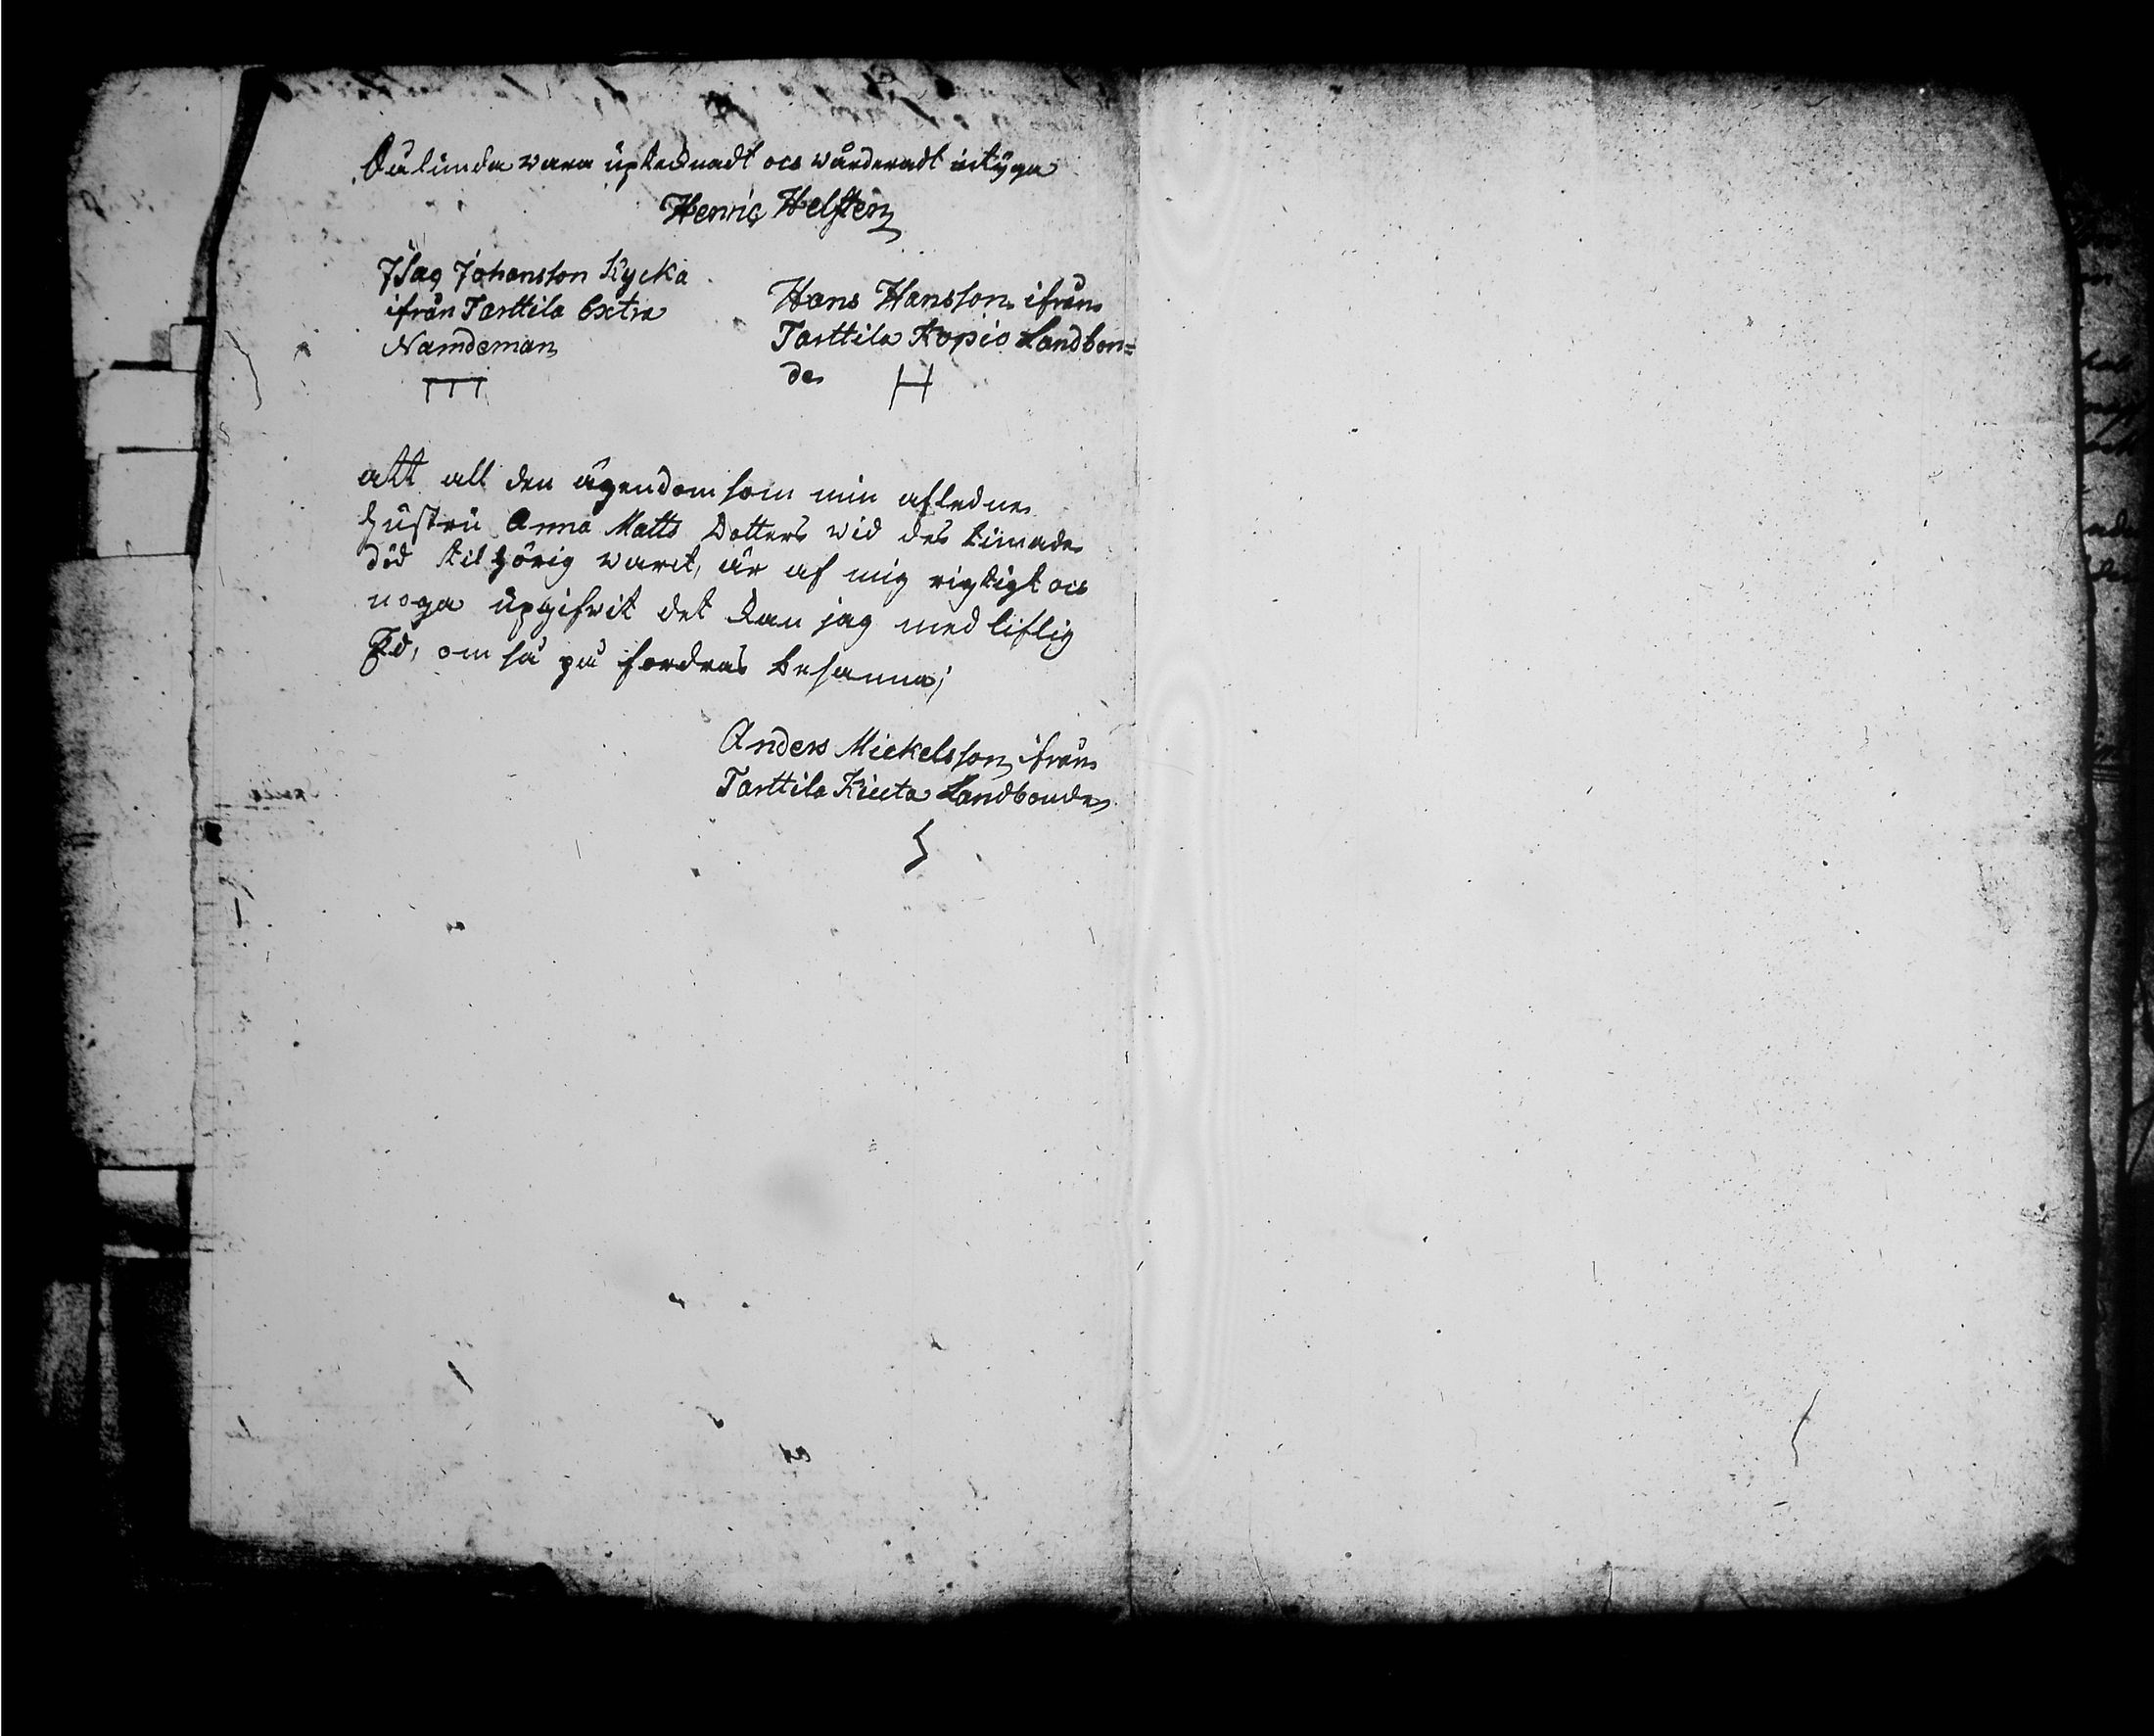 Sålunda vara uptecknadt och värderadt intyga
Henric Helsten
Isac Johansson Kycka
ifrån Tarttila Extra
Nämdeman
Hans Hansson ifrån
Tarttila Kopio Landbon=
de H
att all den ägendom som min afledne
Hustru Anna Matts Dotters wid des timade
död tilhörig warit, är af mig rigtigt och
noga upgifwit det kan jag med liflig
Ed, om så på fordras besanna;
Anders Mickelsson ifrån
Tarttila Kiuta Landbonde